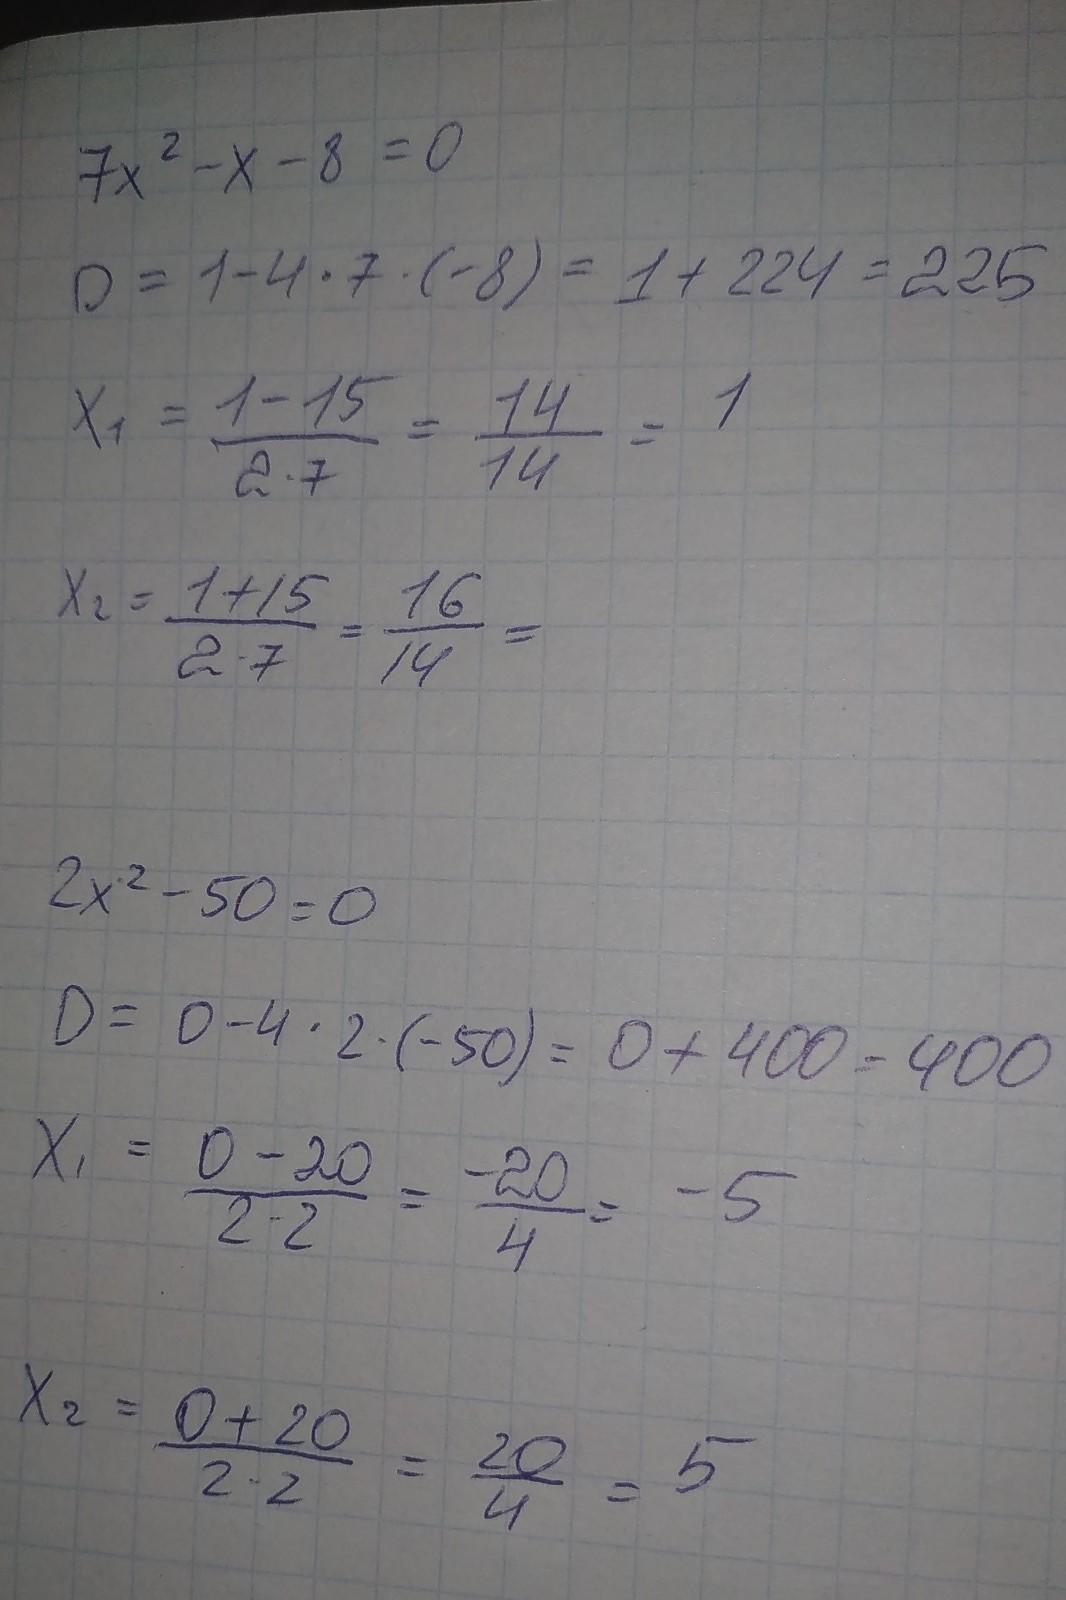 7x² - x - 8 = 0
D = 1 - 4 · 7 · (-8) = 1 + 224 = 225
x₁ = (1 - 15)/(2 · 7) = 14/14 = 1
x₂ = (1 + 15)/(2 · 7) = 16/14 =
2x² - 50 = 0
D = 0 - 4 · 2 · (-50) = 0 + 400 = 400
x₁ = (0 - 20)/(2 · 2) = -20/4 = -5
x₂ = (0 + 20)/(2 · 2) = 20/4 = 5